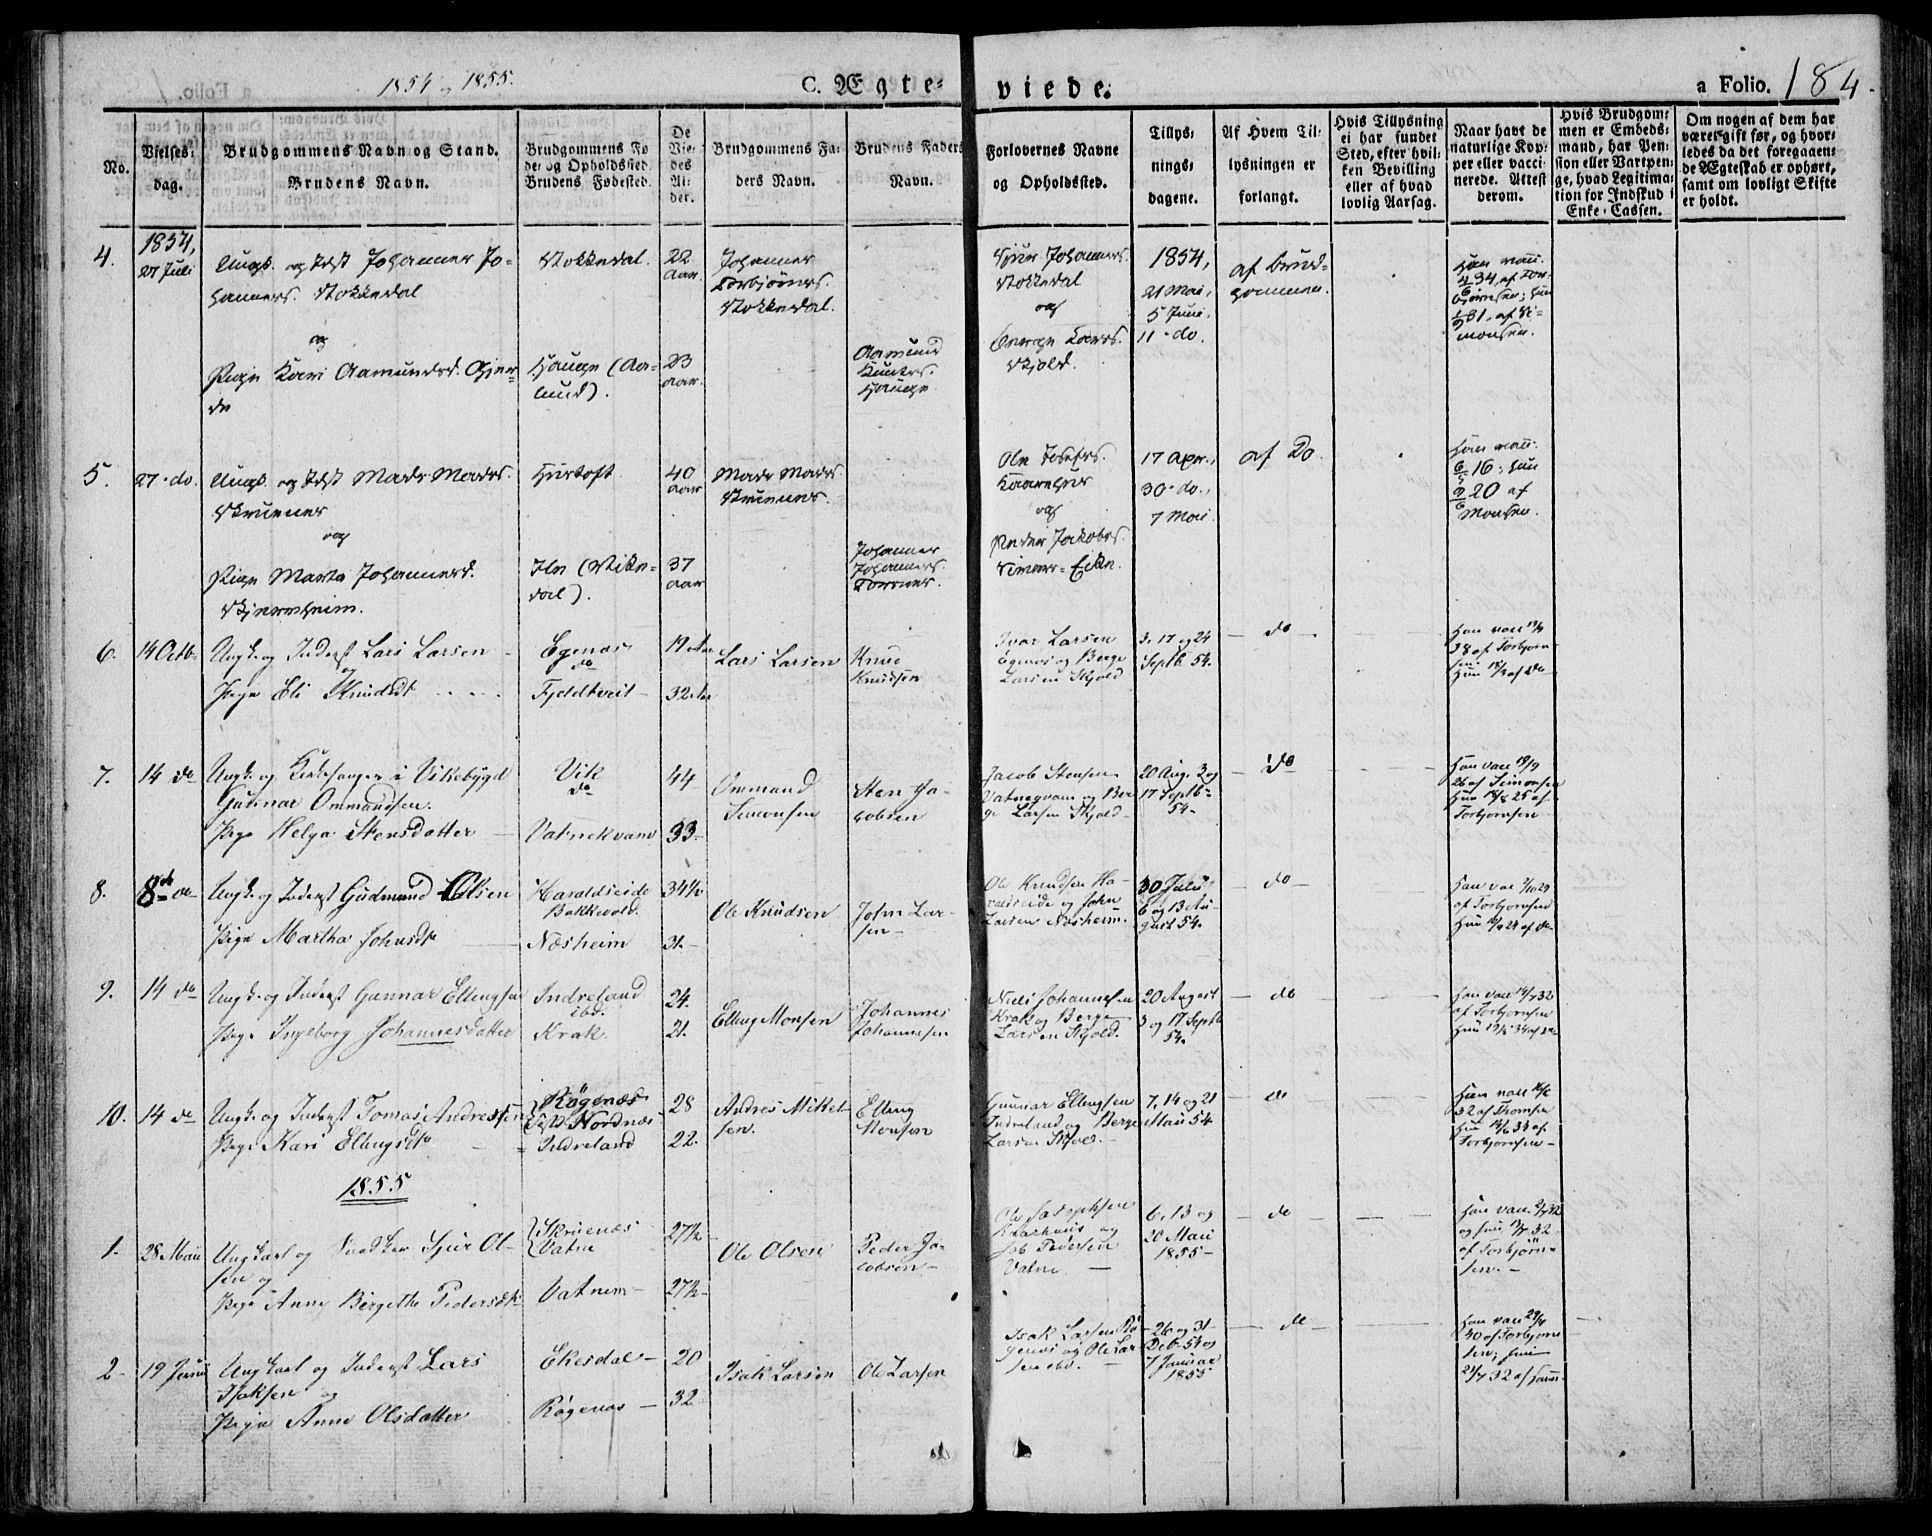 1854 og 1855.
C. Ægte-
viede.
a Folio. 184.
No.
Vielses-
dag.
Brudgommens Navn og Stand.
Brudens Navn.
Brudgommens Fø-
de- og Opholdssted.
Brudens Fødested.
De
Vie-
des
Al-
der.
Brudgommens Fa-
ders Navn.
Brudens Faders
Navn.
Forlovernes Navne
og Opholdssted.
Tillys-
nings-
dagene.
Af Hvem Til-
lysningen er
forlangt.
Hvis Tillysning
ei har fundet
Sted, efter hvil-
ken Bevilling
eller af hvad
lovlig Aarsag.
Naar havt de
naturlige Kop-
per eller vacci-
nerede. Attest
derom.
Hvis Brudgom-
men er Embeds-
mand, har Pen-
sion eller Vartpen-
ge, hvad Legitima-
tion for Indskud i
Enke-Cassen.
Om nogen af dem har
været gift før, og hvor-
ledes da det foregaaen-
de Ægteskab er ophørt,
samt om lovligt Skifte
er holdt.
4.
1854,
27 Juli
Ungk. og Idst Johannes Jo-
hannes. Stokkedal
og
Pige Kari Aamundsd. Gjer-
de
Stokkedal.
Hauge (Aa-
lund).
22
aar.
23
aar.
Johannes
Torbjørns.
Stokkedal.
Aamund
Knuts.
Hauge
Sjur Johannes.
Stokkedal
og
Berge Lars.
Skjold.
1854,
21 Mai,
5 Juni,
11 - do.
af Brud-
gommen.
Han vacc.
34, af Tor-
bjørnsen; hun
31, af Si-
monsen.
5.
27 - do.
Ungk. og Idst Mads Mads.
Skruenes
og
Pige Marta Johannesd.
Skjernsheim.
Hustoft.
Ile (Vike-
dal).
40
aar
37
aar
Mads Mads.
Skruenes.
Johannes
Johannes.
Ole Josefs.
Kaarhus
og
Peder Jakobs.
Eike.
17 Apr.,
30 - do.,
7 Mai.
af Do.
Han vacc.
16; hun
20 af
Monsen.
6.
14 Octb.
Ungk. og Inderst Lars Larsen
og
Pige Eli Knudsdt
Egenæs
do
Fjeldtveit
19 Aar
32 Aar
Lars Larsen
Knud
Knudsen
Ivar Larsen
Egenæs og Berge
Larsen Skjold
3, 17 og 24
Septb. 54.
do
Han vacc
38 af Torbjørn-
sen.
Hun af do
7.
14 do
Ungk. og Kirkesanger i Vikebygd
Gunnar Ommundsen.
Pige Helga Stensdatter
Vik
do
Vatnekvam
44
33
Ommund
Simonsen
Sten Ja-
cobsen
Jacob Stensen
Vatnegvam og Ber
ge Larsen Skjold
20 Aug. 3 og
17 Septb
54.
do
Han vacc 19/9
26 af Simonsen
Hun 18/8 25 af
Torbjørnsen
8.
8de do
Ungk. og Inderst Gudmund Olsen
Pige Martha Johnsdt
Haraldseide
Bakkevold.
Næsheim
34½
31.
Ole Knudsen
John Lar-
sen
Ole Knudsen Ha-
raldseide og John
Larsen Næsheim.
30 Juli
6 og 13 Au-
gust 54.
do
Han vac 29
af Torbjørnsen
Hun 24 af do
9.
14 do
Ungk. og Inderst Gunnar Ellingsen
Pige Ingeborg Johannesdatter
Indreland
ibd.
Krak.
24.
21.
Elling Monsen
Johannes
Johannesen
Niels Johannesen
Krak og Berge
Larsen Skjold.
20 August
3 og 17 Septb
54.
do
Han vacc 32
af Torbjørnsen
Hun 34 af do
10.
14 do
Ungk. og Inderst Tomas Andressen
Pige Kari Ellingsdt.
Røgenæs
Nordnæs
Indreland
28
22.
Andres Mikel-
sen.
Elling
Monsen
Gunnar Ellingsen
Indreland og Berge
Larsen Skjold.
7, 14 og 21
Mai 54
do
Han vacc
32 af Thomsen
Hun 34 af
Torbjørnsen
1855
1.
28 Mai
Ungkarl og Sjur Ol-
sen og
Pige Anne Bergethe Pedersdt
Skruenæs
Vatne
Vatnem
27½
27½
Ole Olsen
Peder Ja-
cobsen
Ole Josephsen
Kaarhuus og
Job Pedersen
Vatne
6, 13 og
20 Mai
1855
do
Han vacc 32
og hun 32
af Torbjørn-
sen.
2
19 Juni
Ungkarl og Inderst Lars
Isaksen og
Pige Anne Olsdatter
Ekesdal
Røgenæs
20
32
Isak Larsen
Ole Larsen
Isak Larsen Rø-
genæs og Ole Lar
sen ibd.
26 og 31
Decb. 54 og
7 Januar
1855
do
Han vacc
30 af Torbjørn
sen; hun
32 af